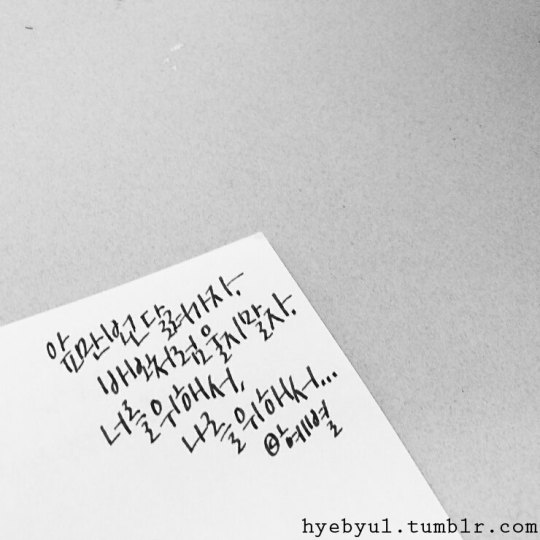 앞만보면 달려가자.
바보처럼 울지말자.
너를위해서,
나를위해서...
@혜별
hyebyul.tumblr.com